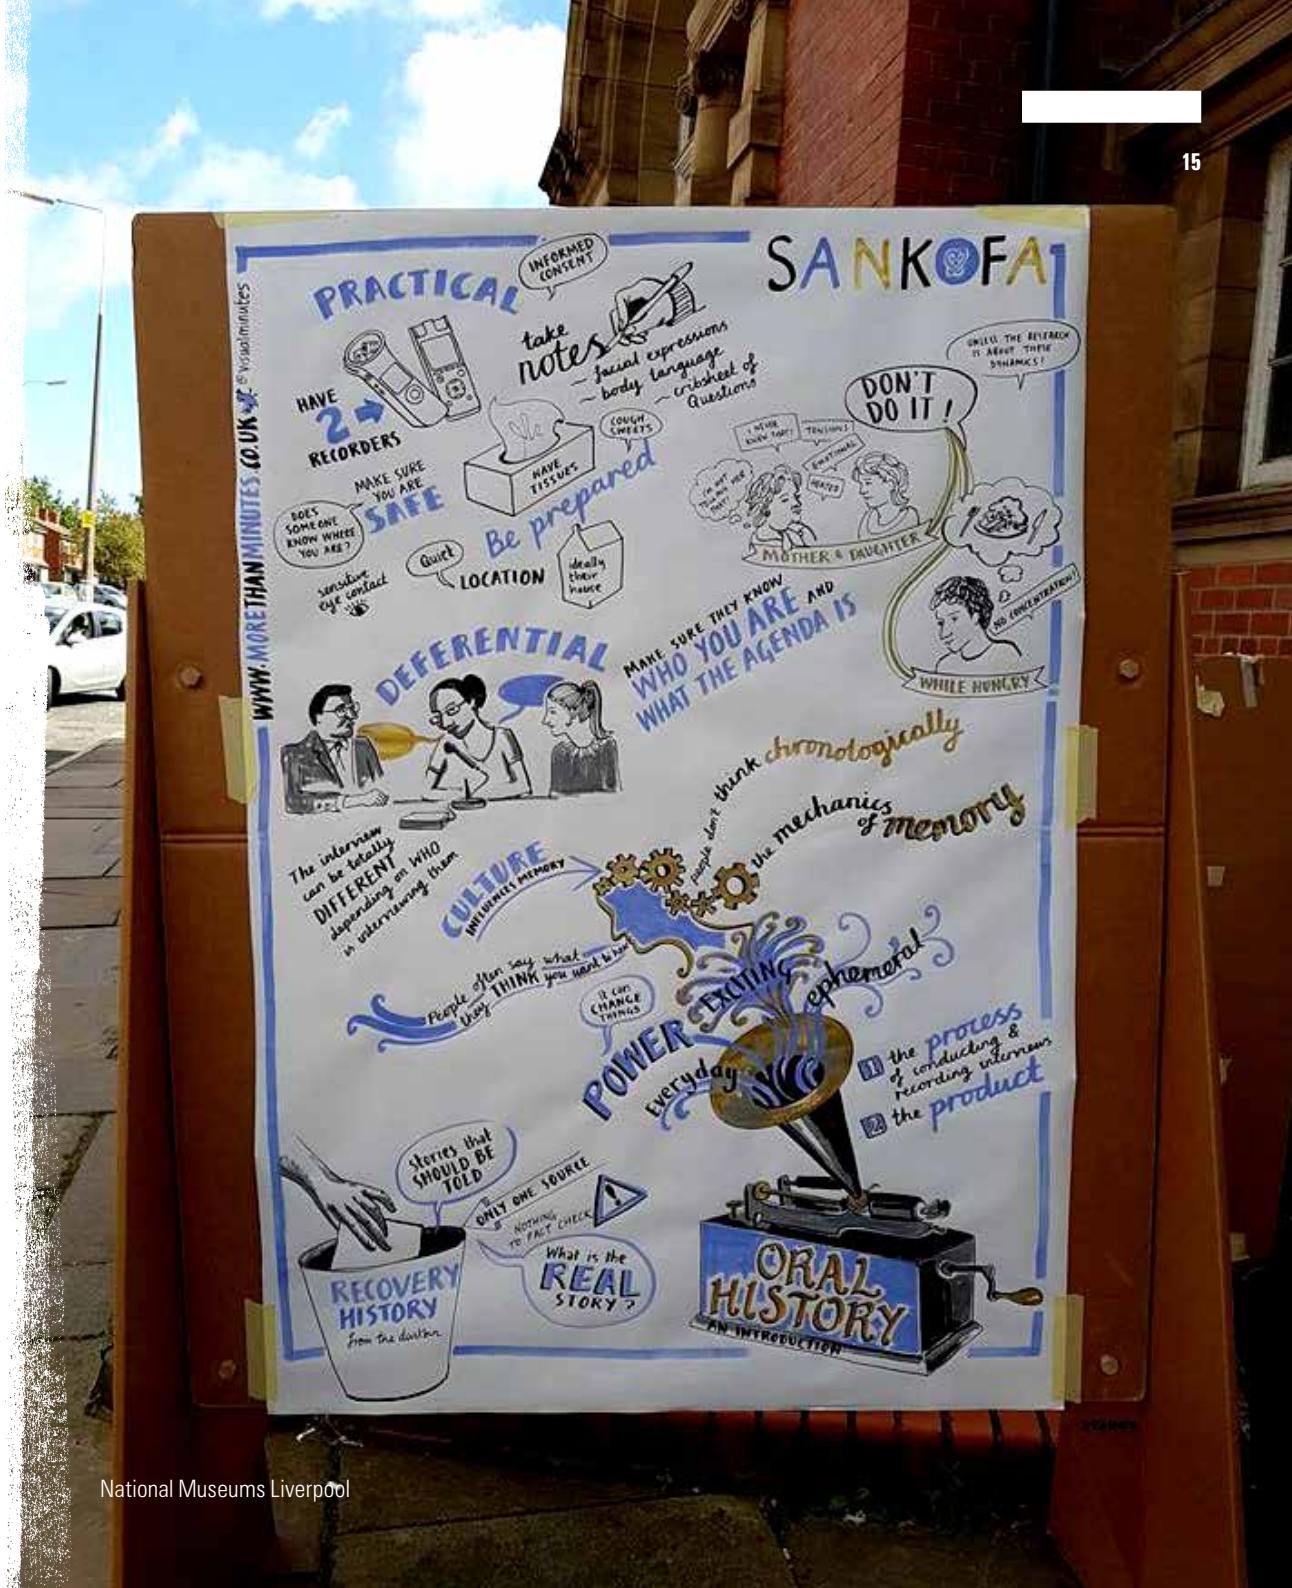 15
SANKOFA
WWW.MORETHANMINUTES.CO.UK @visualminutes
PRACTICAL
INFORMED
CONSENT
HAVE
2
RECORDERS
take
notes
~ facial expressions
~ body language
~ cribsheet of
Questions
HAVE
TISSUES
COUGH
SWEETS
Be prepared
MAKE SURE
YOU ARE
SAFE
DOES
SOMEONE
KNOW WHERE
YOU ARE?
sensitive
eye contact
Quiet
LOCATION
ideally
their
house
UNLESS THE RESEARCH
IS ABOUT THESE
DYNAMICS!
DON'T
DO IT!
I NEVER
KNEW THAT!
TENSIONS
EMOTIONAL
HEATED
MOTHER & DAUGHTER
NO CONCENTRATION!
WHILE HUNGRY
MAKE SURE THEY KNOW
WHO YOU ARE AND
WHAT THE AGENDA IS
DEFERENTIAL
The interview
can be totally
DIFFERENT
depending on WHO
is interviewing them
CULTURE
INFLUENCES MEMORY
people don't think chronologically
the mechanics
of memory
People often say what
they THINK you want to hear
it can
CHANGE
THINGS
POWER
EXCITING
ephemeral
Everyday
1 the process
of conducting &
recording interviews
2 the product
Stories that
SHOULD BE
TOLD
ONLY ONE SOURCE
NOTHING
TO FACT CHECK
!
What is the
REAL
STORY?
RECOVERY
HISTORY
from the dustbin
ORAL
HISTORY
AN INTRODUCTION
National Museums Liverpool